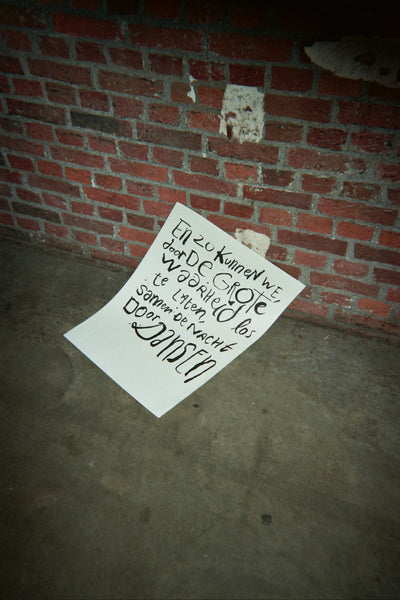 En zo kunnen we,
door DE GROTE
waarheid los
te laten.
samen de nacht
Door
Dansen